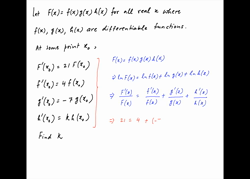 Let F(x) = f(x)g(x)h(x) for all real x where
f(x), g(x), h(x) are differentiable functions.
At some point x₀,
F'(x₀) = 21 F(x₀)
f'(x₀) = 4 f(x₀)
g'(x₀) = -7 g(x₀)
h'(x₀) = k h(x₀)
Find k
F(x) = f(x) g(x) h(x)
⇒ ln F(x) = ln f(x) + ln g(x) + ln h(x)
⇒ F'(x)/F(x) = f'(x)/f(x) + g'(x)/g(x) + h'(x)/h(x)
⇒ 21 = 4 + (-